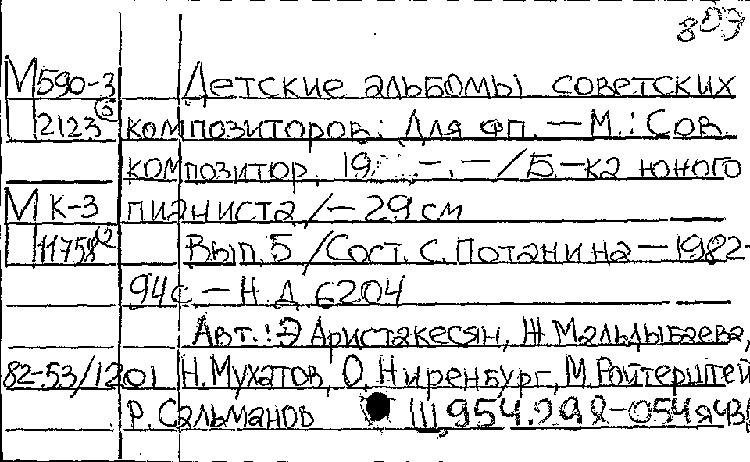 809
М590-3 Детские альбомы советских
2123 композиторов: Для фп. — М.: Сов.
композитор, 19 -. - /Б-ка юного
М К-3 пианиста/ — 29 см
11758 Вып. 5 /Сост. С. Потанина — 1982-
94 с — Н. Д. 6204
Авт.: Э Аристакесян, Ж. Мальдыбаева,
82-53/1201 Н. Мухатов, О. Ниренбург, М. Ройтерштей
Р. Сальманов Ш 954.298-054